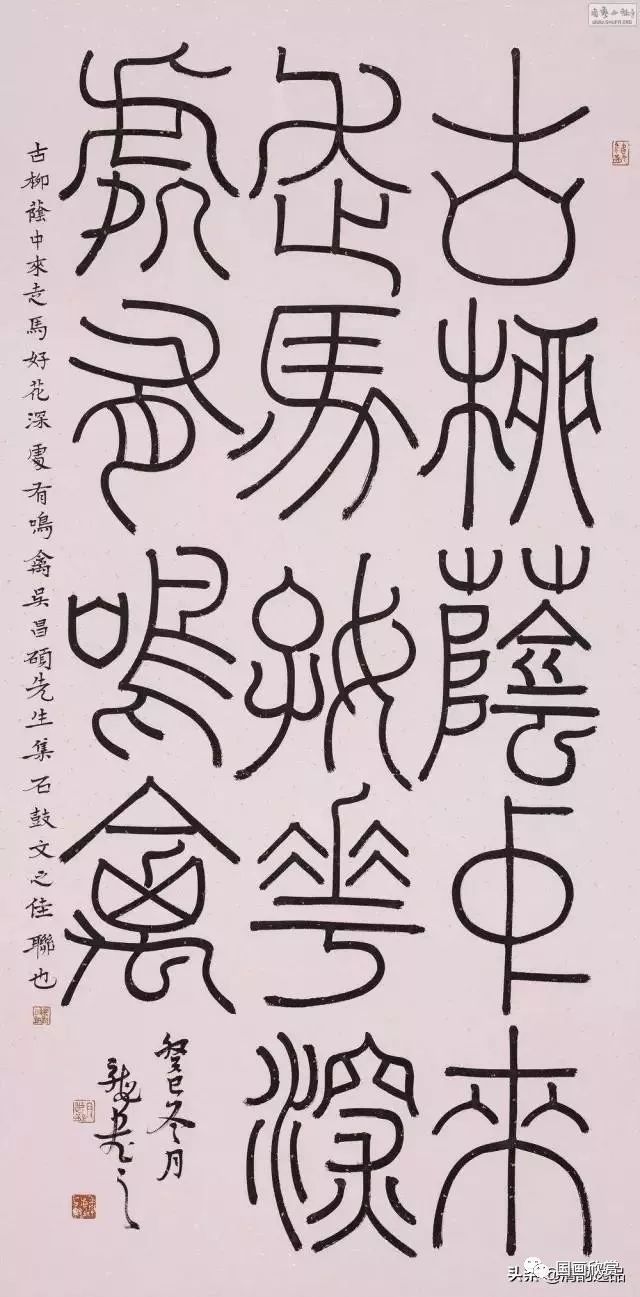 古柳蔭中來
走馬好花深
處有鳴禽
古柳蔭中來走馬好花深處有鳴禽吳昌碩先生集石鼓文之佳聯也
癸巳冬月
书之
国画欣赏
头条